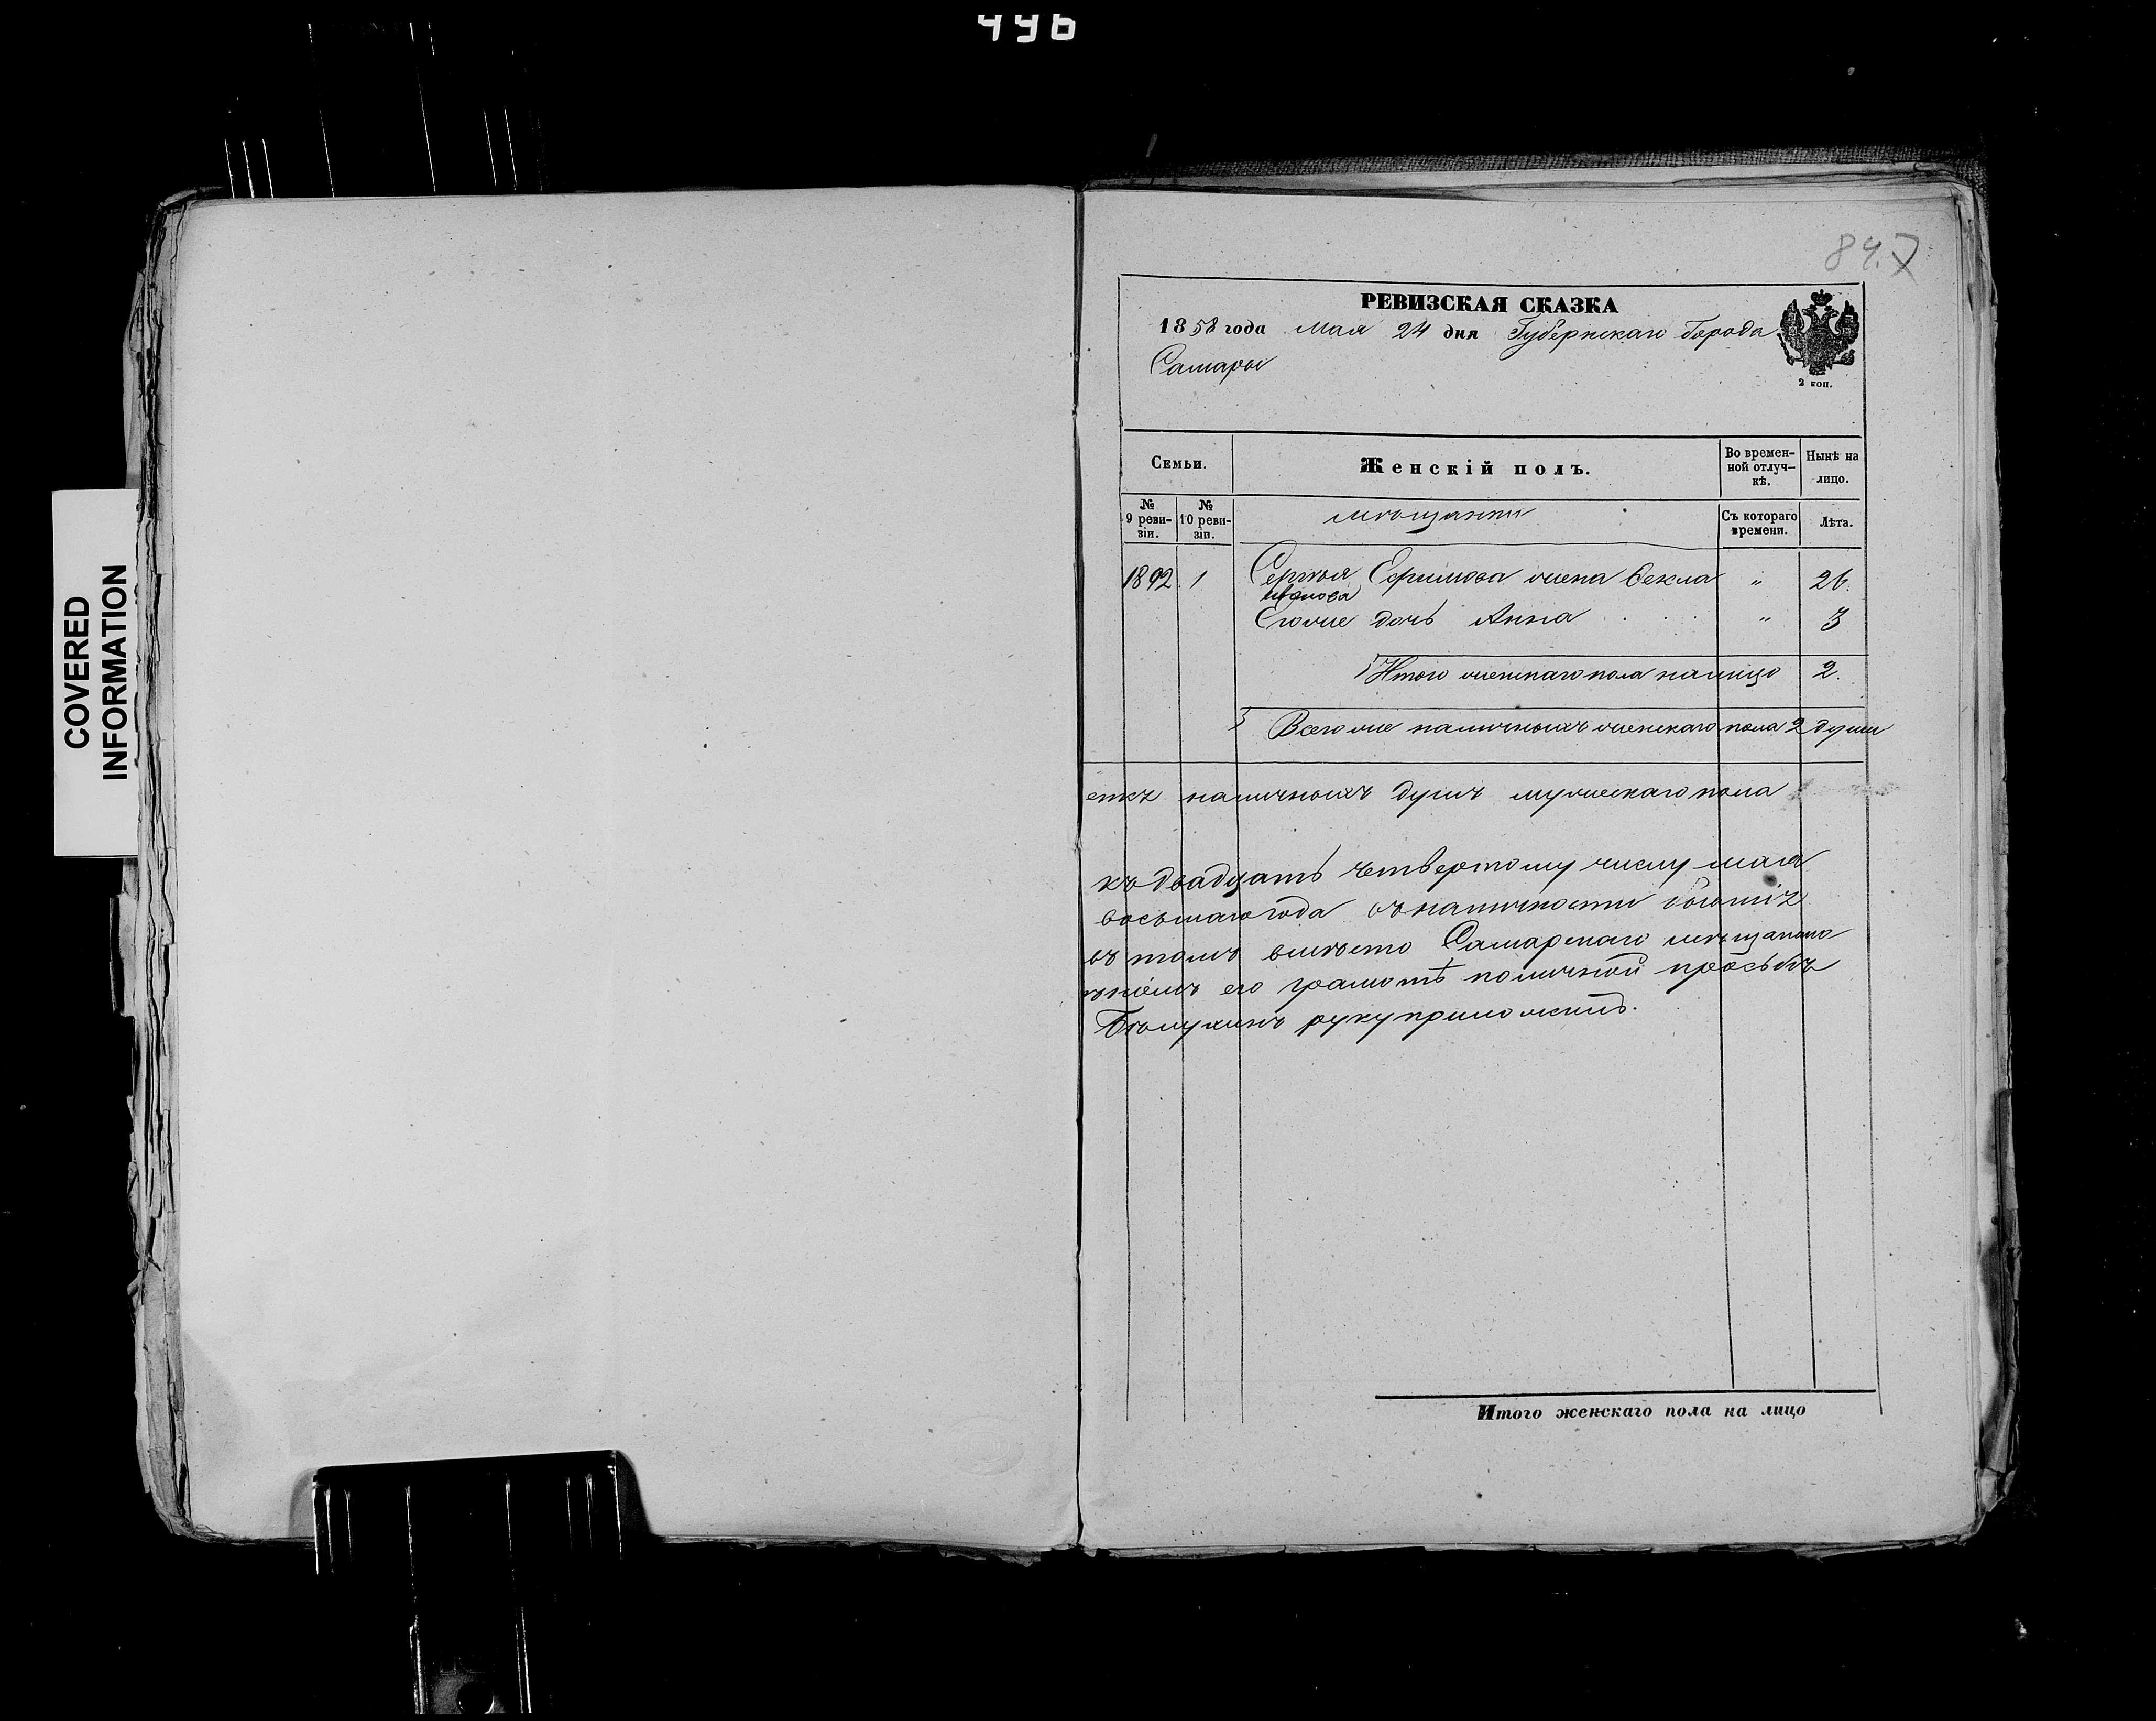 496
COVERED
INFORMATION
84.
РЕВИЗСКАЯ СКАЗКА
1858 года Мая 24 дня Губернскаго Города
Самары
2 коп.
Семьи.
Женскій полъ.
Во времен-
ной отлуч-
кѣ.
Нынѣ на
лицо.
№
9 реви-
зіи.
№
10 реви-
зіи.
мѣщанки
Съ котораго
времени.
Лѣта.
1892 1 Сергѣя Ефимова жена Векла " 26.
иванова
Егоже дочь Анна . . . " 3
Итого женскаго пола налицо 2.
Всего же наличныхъ женскаго пола 2 души
наличныхъ душъ мужескаго пола
къ двадцать четвертому числу мая
восьмаго года въ наличности
въ томъ вмѣсто Самарскаго мѣщанина
его грамотѣ поличной прозьбѣ
руку приложилъ.
Итого женскаго пола на лицо